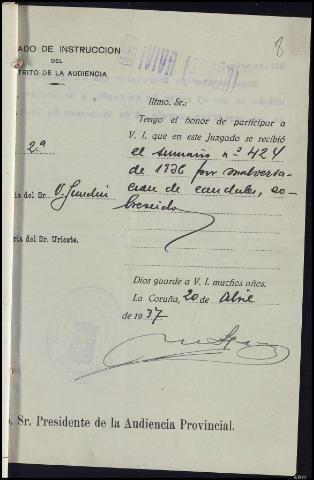 8
¡VIVA ESPAÑA!
ADO DE INSTRUCCION
DEL
TRITO DE LA AUDIENCIA
Iltmo. Sr.:
Tengo el honor de participar a
V. I. que en este Juzgado se recibió
2ª
el sumario nº 424
de 1936 por malversa-
ía del Sr.
cion de caudales, so-
breseido
ría del Sr. Urioste.
Dios guarde a V. I. muchos años.
La Coruña, 20 de Abril
de 1937
o. Sr. Presidente de la Audiencia Provincial.